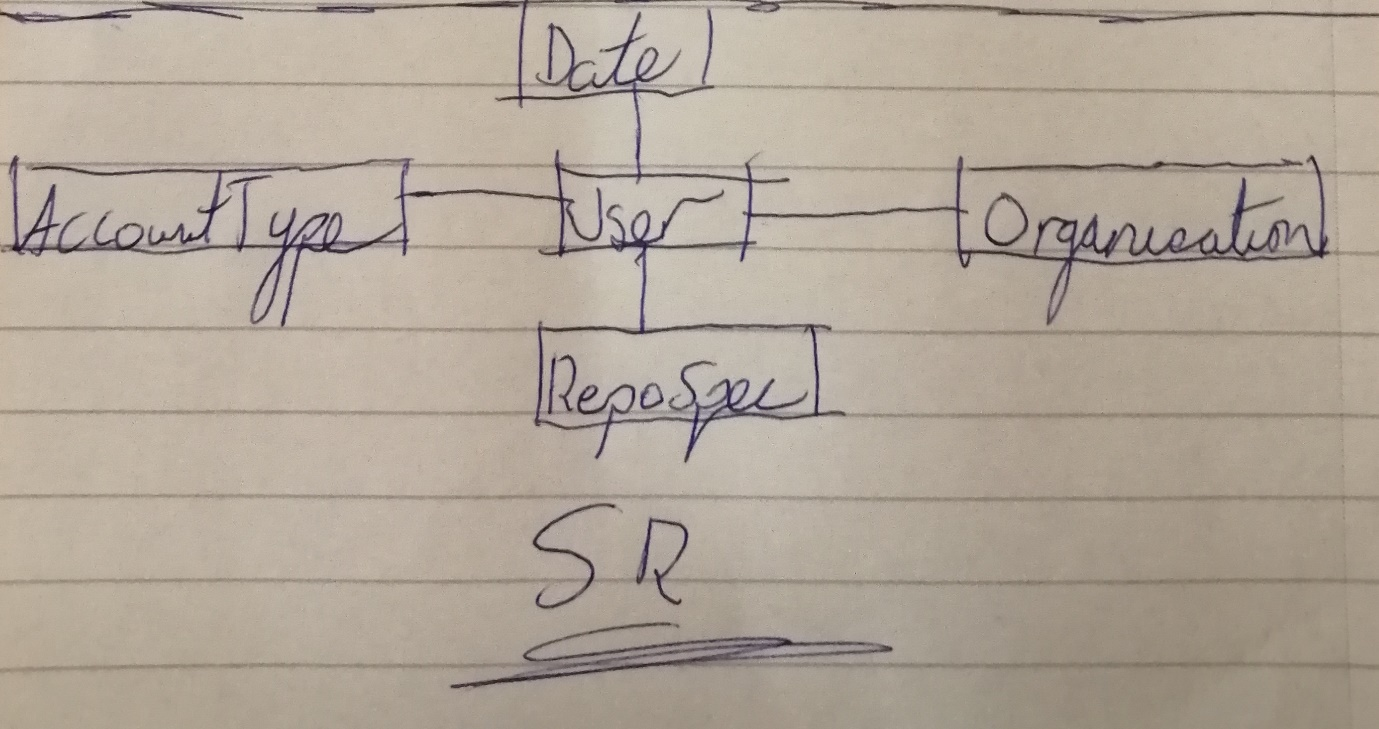 Date
AccountType User Organisation
RepoSpec
SR